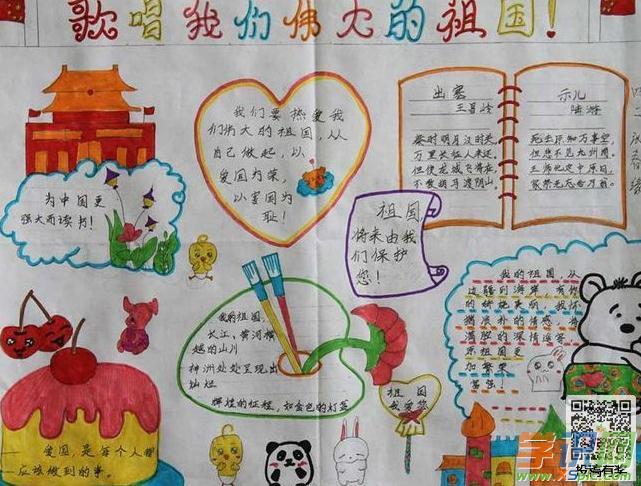 歌唱我们伟大的祖国!
我们要热爱我
们伟大的祖国,从
自己做起,以
爱国为荣,
以害国为
耻!
出塞
王昌龄
秦时明月汉时关
万里长征人未还,
但使龙城飞将在,
不教胡马渡阴山,
示儿
陆游
死去元知万事空,
但悲不见九州同,
王师北定中原日,
家祭无忘告乃翁。
为中国更
强大而读书!
祖国
将来由我
们保护
您!
我的祖国,从
我的祖国
长江、黄河横
越的山川
神洲处处呈现出
灿烂
辉煌的征程,如金色的灯盏
祖国
我爱您
爱国,是每个人都
应该做到的事。
投稿有奖